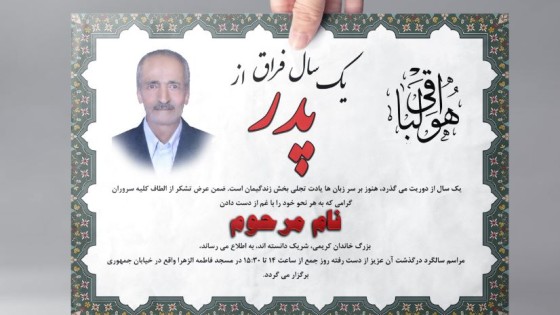 هوالباقی
یک سال فراق از
پدر
یک سال از دوریت می گذرد، هنوز بر سر زبان ها یادت تجلی بخش زندگیمان است. ضمن عرض تشکر از الطاف کلیه سروران
گرامی که به هر نحو خود را با غم از دست دادن
نام مرحوم
بزرگ خاندان کریمی، شریک دانسته اند، به اطلاع می رساند،
مراسم سالگرد درگذشت آن عزیز از دست رفته روز جمع از ساعت ۱۴ تا ۱۵:۳۰ در مسجد فاطمه الزهرا واقع در خیابان جمهوری
برگزار می گردد.